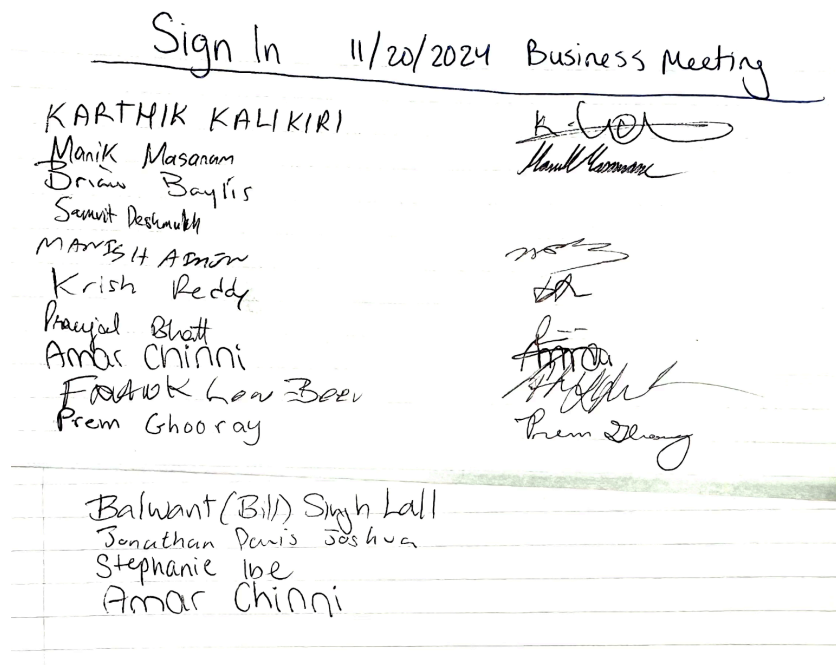 Sign In 11/20/2024 Business Meeting
KARTHIK KALIKIRI
Manik Masanam
Brian Baylis
Samrit Deshmukh
MANISH
Krish Reddy
Pranjal Bhatt
Amar Chinni Amar
Low-Beer
Prem Ghooray Prem
Balwant (Bill) Singh Lall
Jonathan Davis Joshua
Stephanie Ibe
Amar Chinni